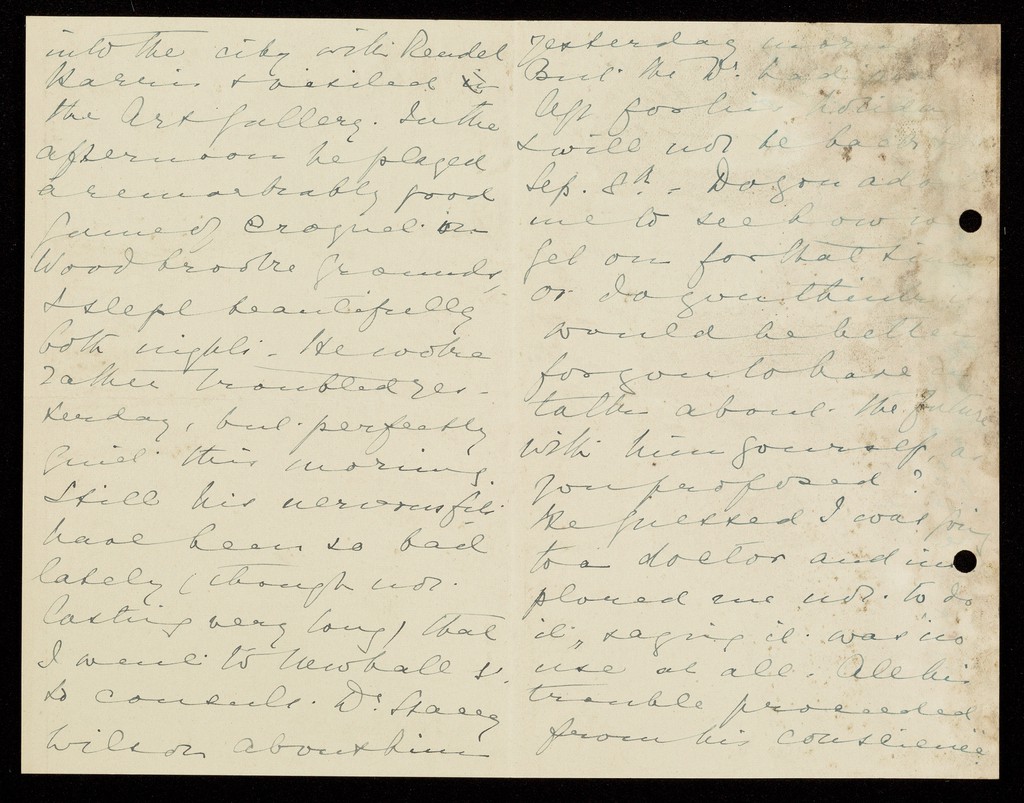 into the city with Rendel
Harris & visited
the Art Gallery. In the
afternoon he played
a remarkably good
game of croquet in
Woodbrooke grounds,
& slept beautifully
both nights - He woke
rather troubled yes-
terday, but perfectly
quiet this morning
Still his nervous fits
have been so bad
lately (though not
lasting very long) that
I went to Newhall S.
to consult Dr. Stacey
Wilson about him
yesterday
But the Dr. had
left for his holiday
& will not be back
Sep. 8th - Do you
me to see how
get on for that time
or do you think
would be better
for you to have
talk about the future
with him yourself, as
you proposed?
He guessed I was going
to a doctor and im
plored me not to do
it, saying it was "no
use at all. All his
trouble proceeded
from his conscience